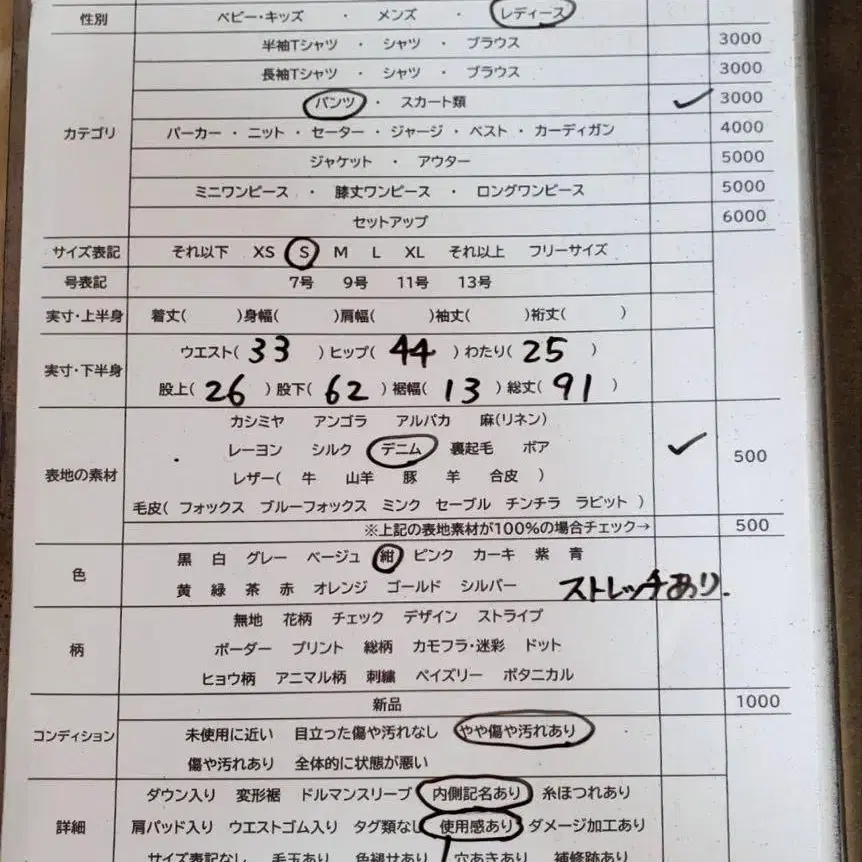 性別 ベビー・キッズ ・ メンズ ・ レディース
半袖Tシャツ ・ シャツ ・ ブラウス 3000
長袖Tシャツ ・ シャツ ・ ブラウス 3000
パンツ ・ スカート類 ✓ 3000
カテゴリ パーカー ・ ニット ・ セーター ・ ジャージ ・ ベスト ・ カーディガン 4000
ジャケット ・ アウター 5000
ミニワンピース ・ 膝丈ワンピース ・ ロングワンピース 5000
セットアップ 6000
サイズ表記 それ以下 XS S M L XL それ以上 フリーサイズ
号表記 7号 9号 11号 13号
実寸・上半身 着丈( )身幅( )肩幅( )袖丈( )裄丈( )
実寸・下半身 ウエスト( 33 )ヒップ( 44 )わたり( 25 )
股上( 26 )股下( 62 )裾幅( 13 )総丈( 91 )
カシミヤ アンゴラ アルパカ 麻(リネン)
レーヨン シルク デニム 裏起毛 ボア ✓ 500
表地の素材 レザー( 牛 山羊 豚 羊 合皮 )
毛皮( フォックス ブルーフォックス ミンク セーブル チンチラ ラビット )
※上記の表地素材が100%の場合チェック→ 500
色 黒 白 グレー ベージュ 紺 ピンク カーキ 紫 青
黄 緑 茶 赤 オレンジ ゴールド シルバー ストレッチあり.
無地 花柄 チェック デザイン ストライプ
柄 ボーダー プリント 総柄 カモフラ・迷彩 ドット
ヒョウ柄 アニマル柄 刺繍 ペイズリー ボタニカル
新品 1000
コンディション 未使用に近い 目立った傷や汚れなし やや傷や汚れあり
傷や汚れあり 全体的に状態が悪い
ダウン入り 変形裾 ドルマンスリーブ 内側記名あり 糸ほつれあり
詳細 肩パッド入り ウエストゴム入り タグ類なし 使用感あり ダメージ加工あり
サイズ表記なし 毛玉あり 色褪せあり 穴あきあり 補修跡あり